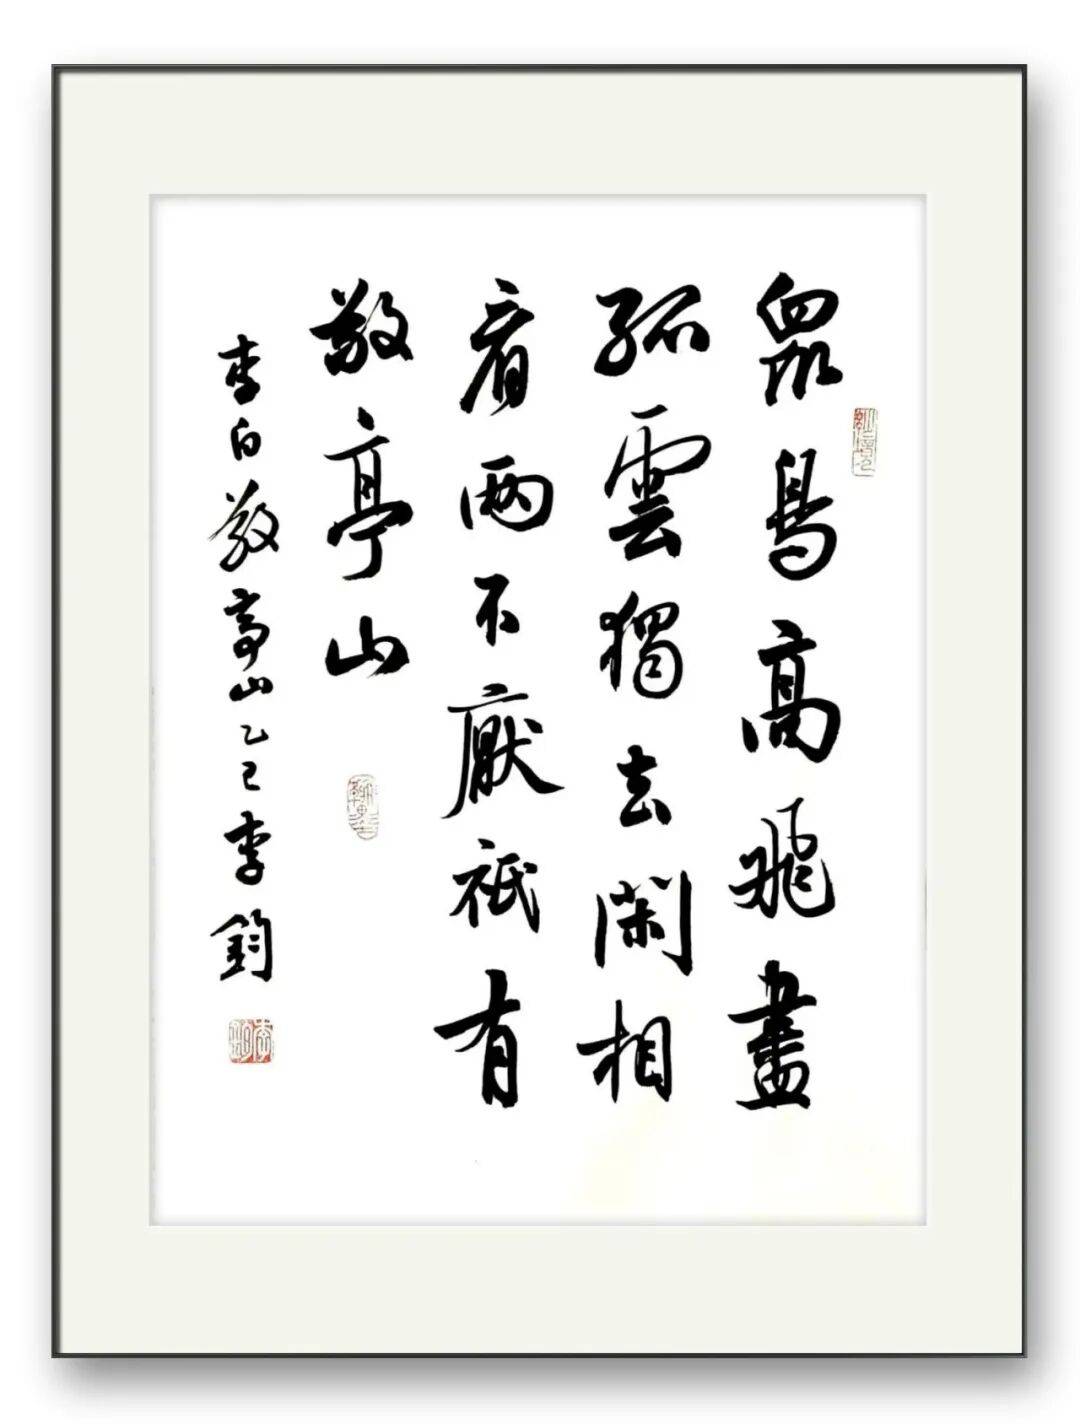 眾鳥高飛盡
孤雲獨去閑相
看兩不厭祇有
敬亭山
李白敬亭山乙巳李鈞